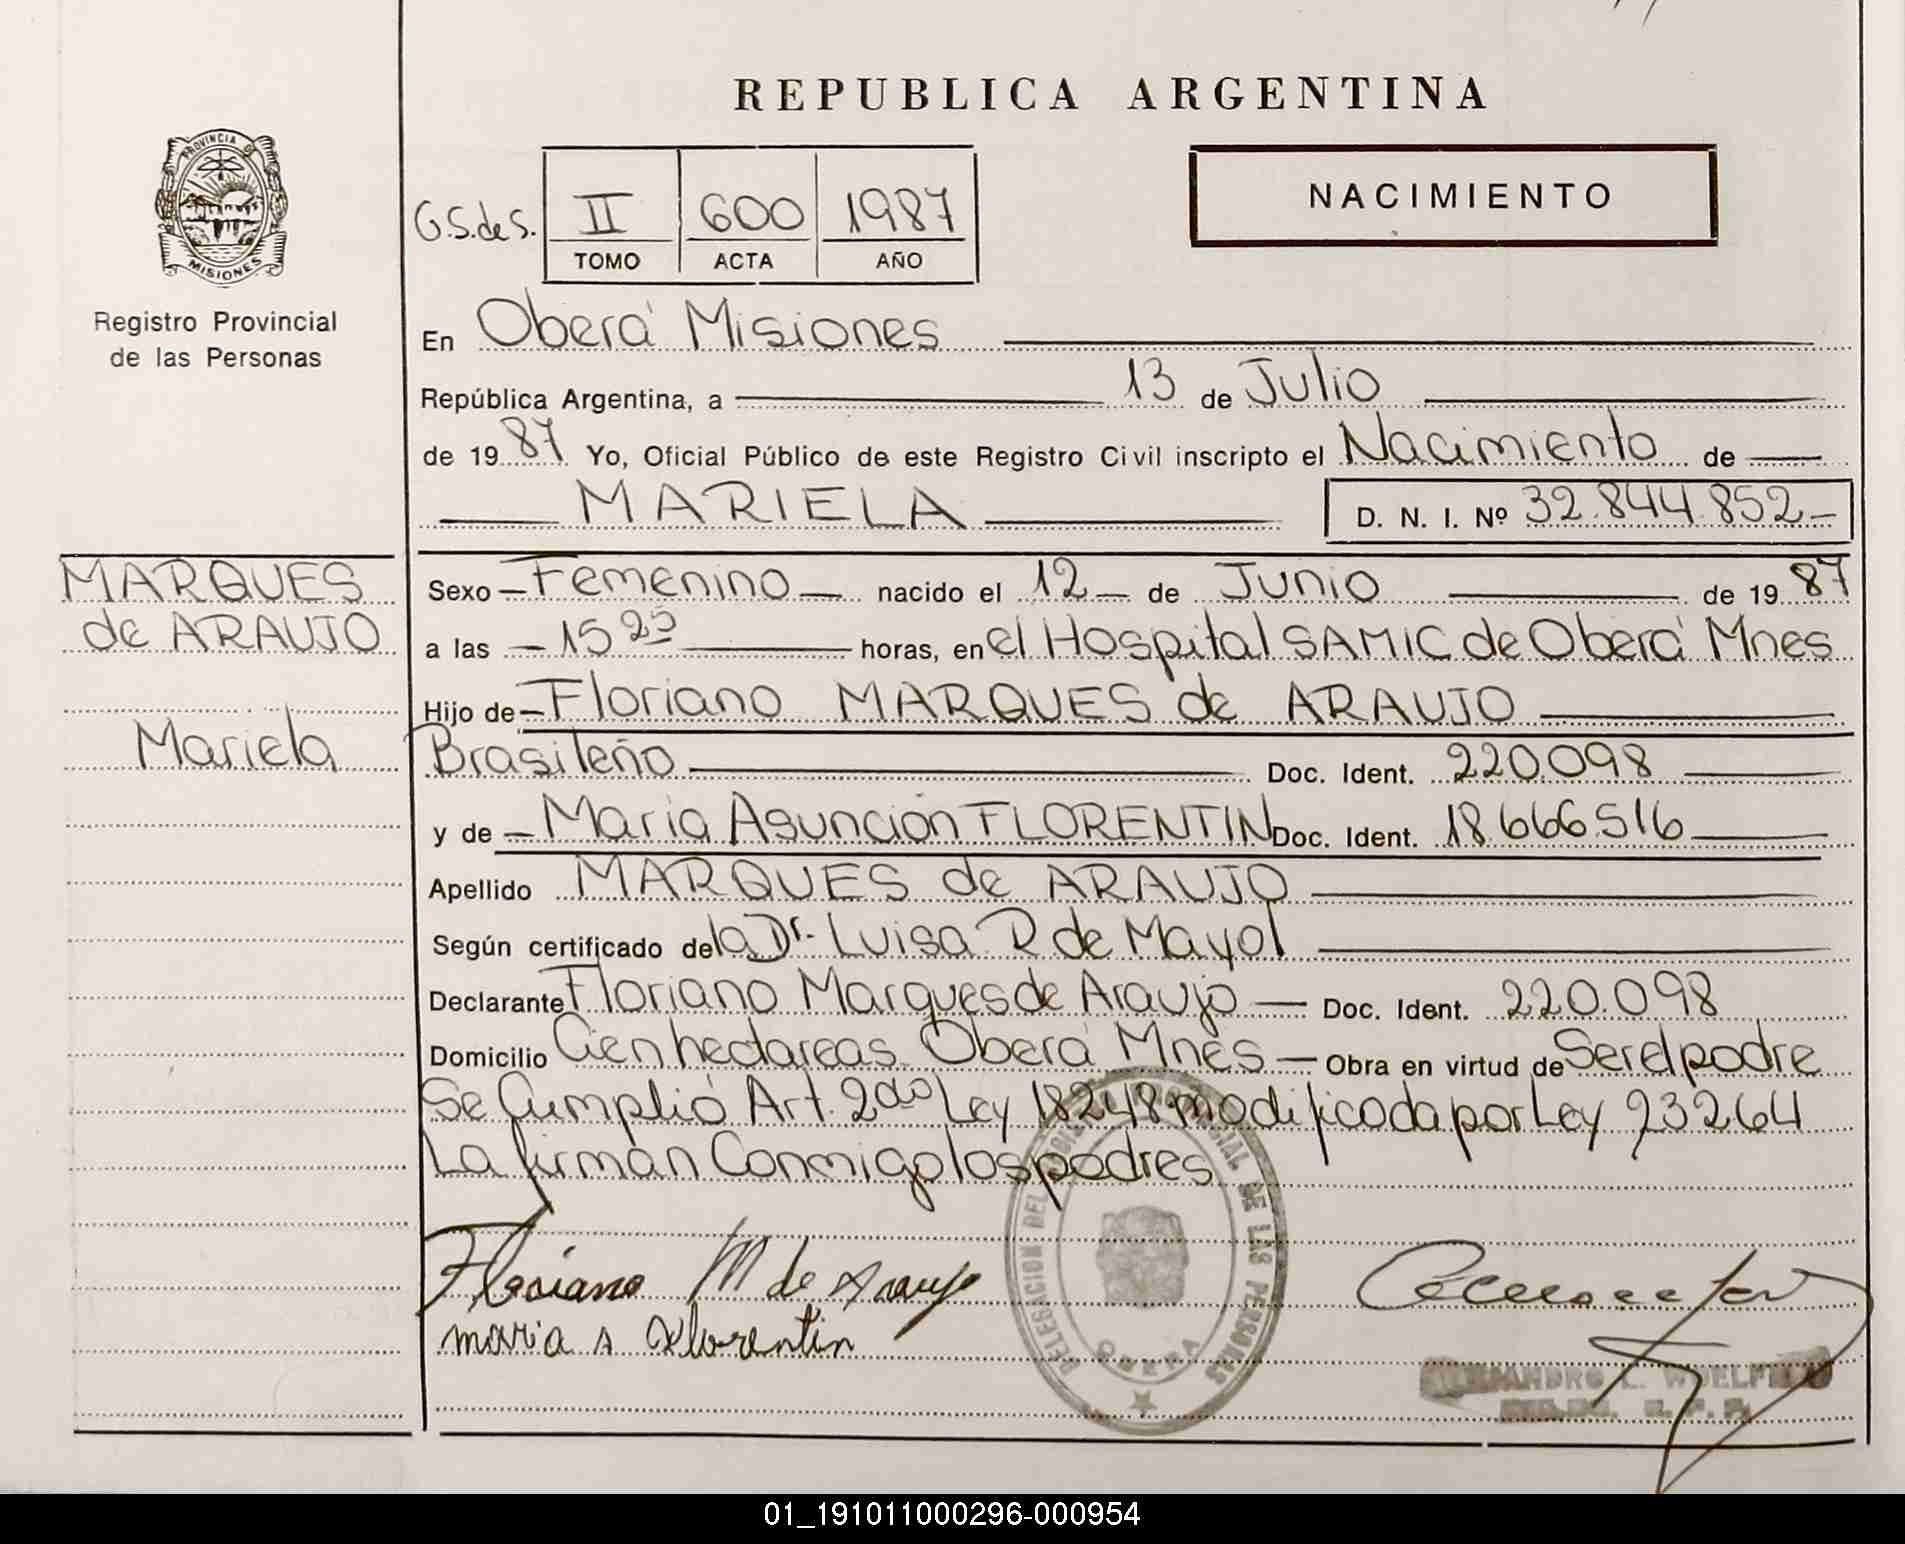 REPUBLICA ARGENTINA
PROVINCIA DE
MISIONES
Registro Provincial
de las Personas
G.S.de S. II 600 1987
TOMO ACTA AÑO
NACIMIENTO
En Oberá Misiones
República Argentina, a 13 de Julio
de 1987 Yo, Oficial Público de este Registro Civil inscripto el Nacimiento de
MARIELA D. N. I. Nº 32.844.852
MARQUES
de ARAUJO
Mariela
Sexo Femenino nacido el 12 de Junio de 1987
a las 15 25 horas, en el Hospital SAMIC de Oberá Mnes
Hijo de Floriano MARQUES de ARAUJO
Brasileño Doc. Ident. 220.098
y de Maria Asunción FLORENTIN Doc. Ident. 18.666.516
Apellido MARQUES de ARAUJO
Según certificado de la Dr. Luisa R de Mayol
Declarante Floriano Marques de Araujo Doc. Ident. 220.098
Domicilio Cien hectareas Oberá Mnes Obra en virtud de Ser el padre
Se Cumplió Art. 2do Ley 18248 modificada por Ley 23264
La firman Conmigo los padres
Floriano M de Araujo
maria A Florentin
DELEGACION DEL REGISTRO PROVINCIAL DE LAS PERSONAS
OBERA
01_191011000296-000954